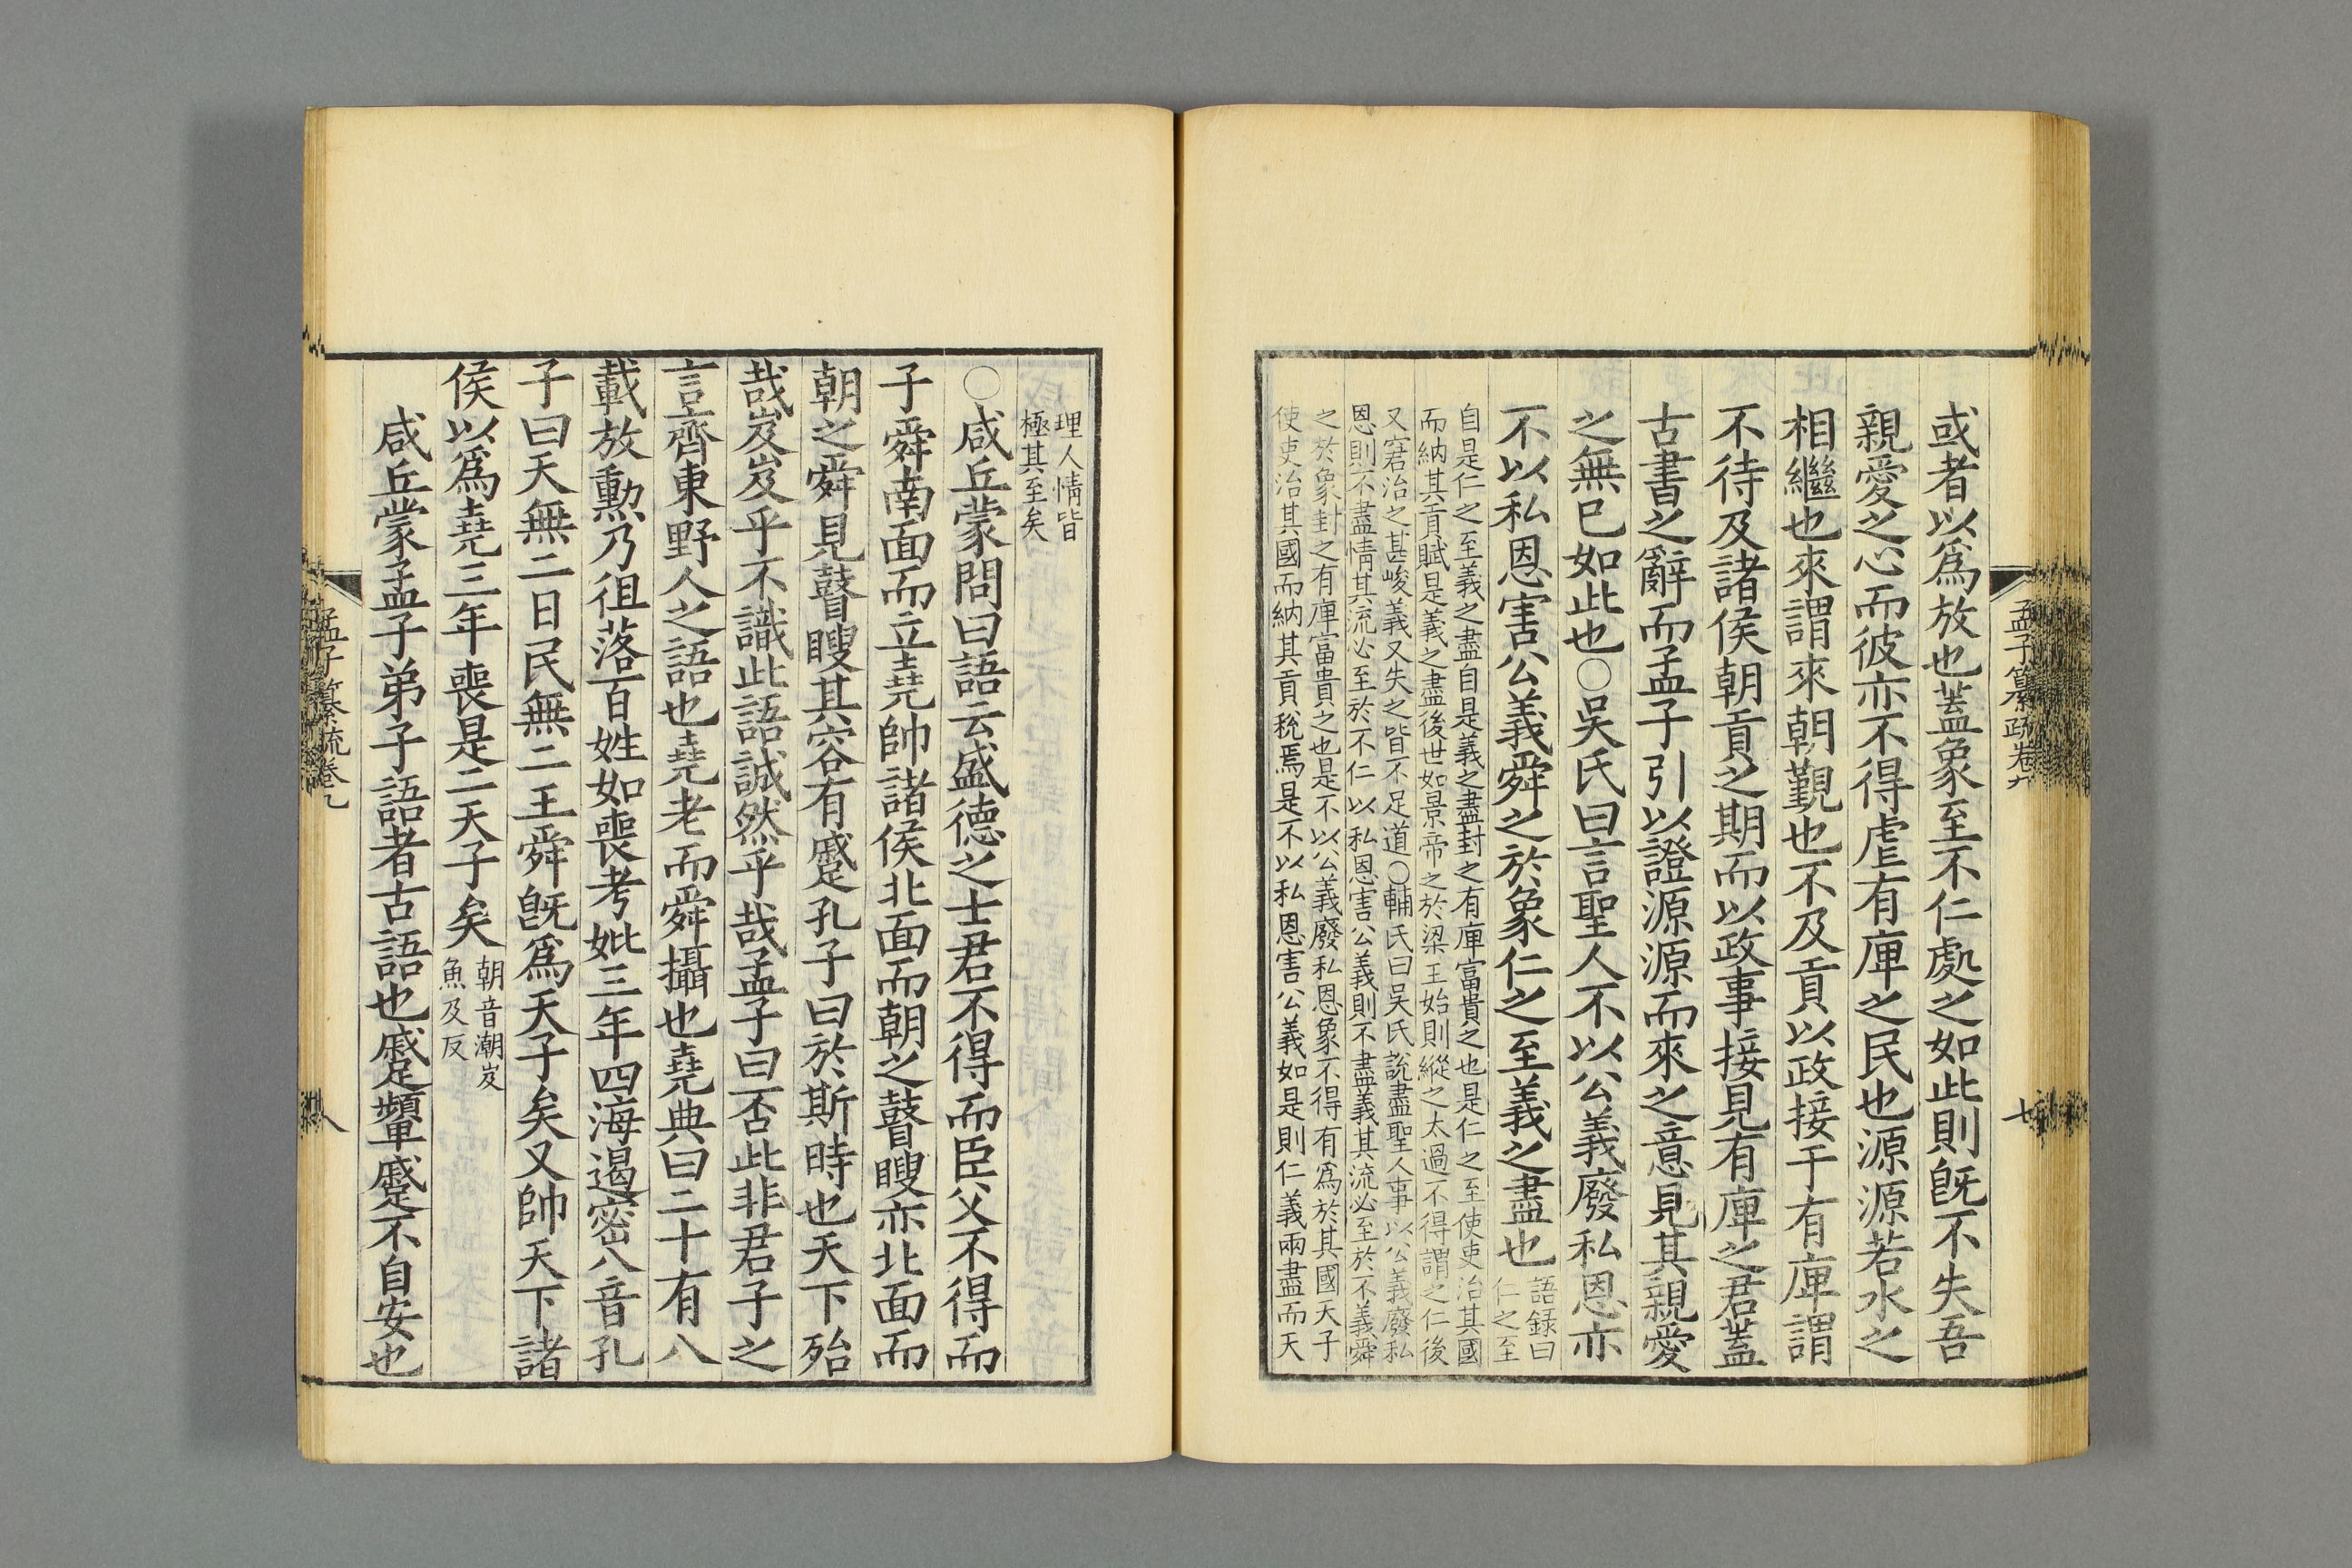 孟子纂疏卷九
七
或者以爲放也蓋象至不仁處之如此則旣不失吾
親愛之心而彼亦不得虐有庳之民也源源若水之
相繼也來謂來朝覲也不及貢以政接于有庳謂
不待及諸侯朝貢之期而以政事接見有庳之君蓋
古書之辭而孟子引以證源源而來之意見其親愛
之無已如此也○吳氏曰言聖人不以公義廢私恩亦
不以私恩害公義舜之於象仁之至義之盡也
語録曰
仁之至
自是仁之至義之盡自是義之盡封之有庳富貴之也是仁之至使吏治其國
而納其貢賦是義之盡後世如景帝之於梁王始則縱之太過不得謂之仁後
又窘治之甚峻義又失之皆不足道○輔氏曰吳氏說盡聖人事以公義廢私
恩則不盡情其流必至於不仁以私恩害公義則不盡義其流必至於不義舜
之於象封之有庳富貴之也是不以公義廢私恩象不得有爲於其國天子
使吏治其國而納其貢稅焉是不以私恩害公義如是則仁義兩盡而天
理人情皆
極其至矣
○咸丘蒙問曰語云盛德之士君不得而臣父不得而
子舜南面而立堯帥諸侯北面而朝之瞽瞍亦北面而
朝之舜見瞽瞍其容有蹙孔子曰於斯時也天下殆
哉岌岌乎不識此語誠然乎哉孟子曰否此非君子之
言齊東野人之語也堯老而舜攝也堯典曰二十有八
載放勳乃徂落百姓如喪考妣三年四海遏密八音孔
子曰天無二日民無二王舜旣爲天子矣又帥天下諸
侯以爲堯三年喪是二天子矣
朝音潮岌
魚及反
咸丘蒙孟子弟子語者古語也蹙顰蹙不自安也
孟子纂疏卷九
八